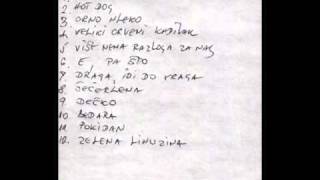 2. HOT DOG
3. CRNO MLEKO
4. VELIKI CRVENI KAPUTAK
5. VIŠE NEMA RAZLOGA ZA NAS
6. E, PA ŠTO
7. DRAGA, IDI DO VRAGA
8. ČEČERLENA
9. DEČKO
10. BEDARA
11. POKIDAN
12. ZELENA LIMUZINA